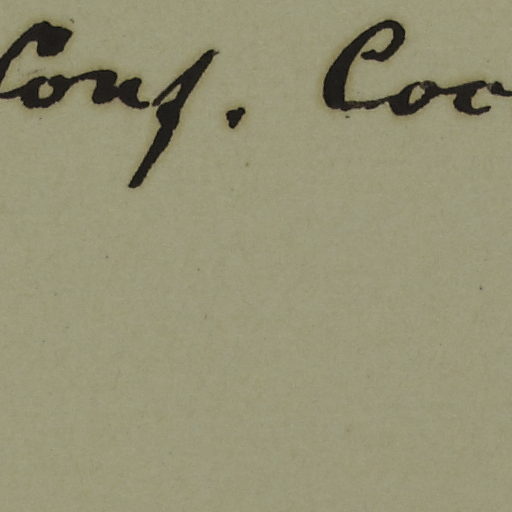 Conf. Coc